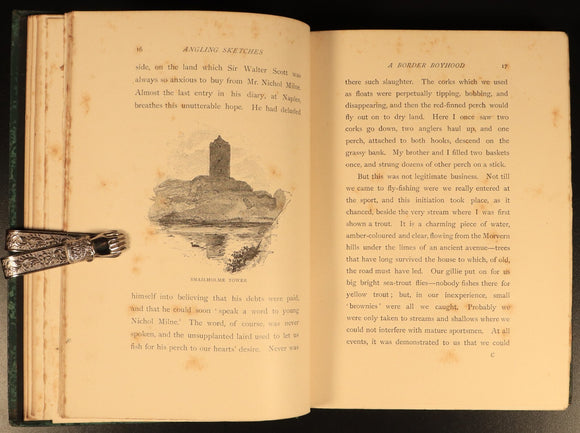 16 ANGLING SKETCHES
side, on the land which Sir Walter Scott was
always so anxious to buy from Mr. Nichol Milne.
Almost the last entry in his diary, at Naples,
breathes this unutterable hope. He had deluded
SMAILHOLME TOWER
himself into believing that his debts were paid,
and that he could soon ‘speak a word to young
Nichol Milne.’ The word, of course, was never
spoken, and the unsupplanted laird used to let us
fish for his perch to our hearts’ desire. Never was
A BORDER BOYHOOD 17
there such slaughter. The corks which we used
as floats were perpetually tipping, bobbing, and
disappearing, and then the red-finned perch would
fly out on to dry land. Here I once saw two
corks go down, two anglers haul up, and one
perch, attached to both hooks, descend on the
grassy bank. My brother and I filled two baskets
once, and strung dozens of other perch on a stick.
But this was not legitimate business. Not till
we came to fly-fishing were we really entered at
the sport, and this initiation took place, as it
chanced, beside the very stream where I was first
shown a trout. It is a charming piece of water,
amber-coloured and clear, flowing from the Morvern
hills under the limes of an ancient avenue—trees
that have long survived the house to which, of old,
the road must have led. Our gillie put on for us
big bright sea-trout flies—nobody fishes there for
yellow trout; but, in our inexperience, small
‘brownies’ were all we caught. Probably we
were only taken to streams and shallows where we
could not interfere with mature sportsmen. At all
events, it was demonstrated to us that we could
C